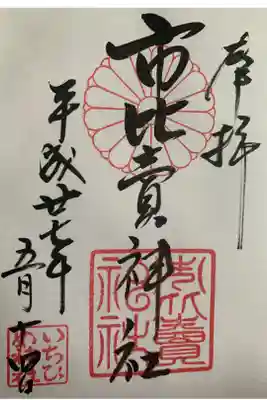 奉拝
市比賣神社
平成廿七年
五月
市比賣
神社
いちひ